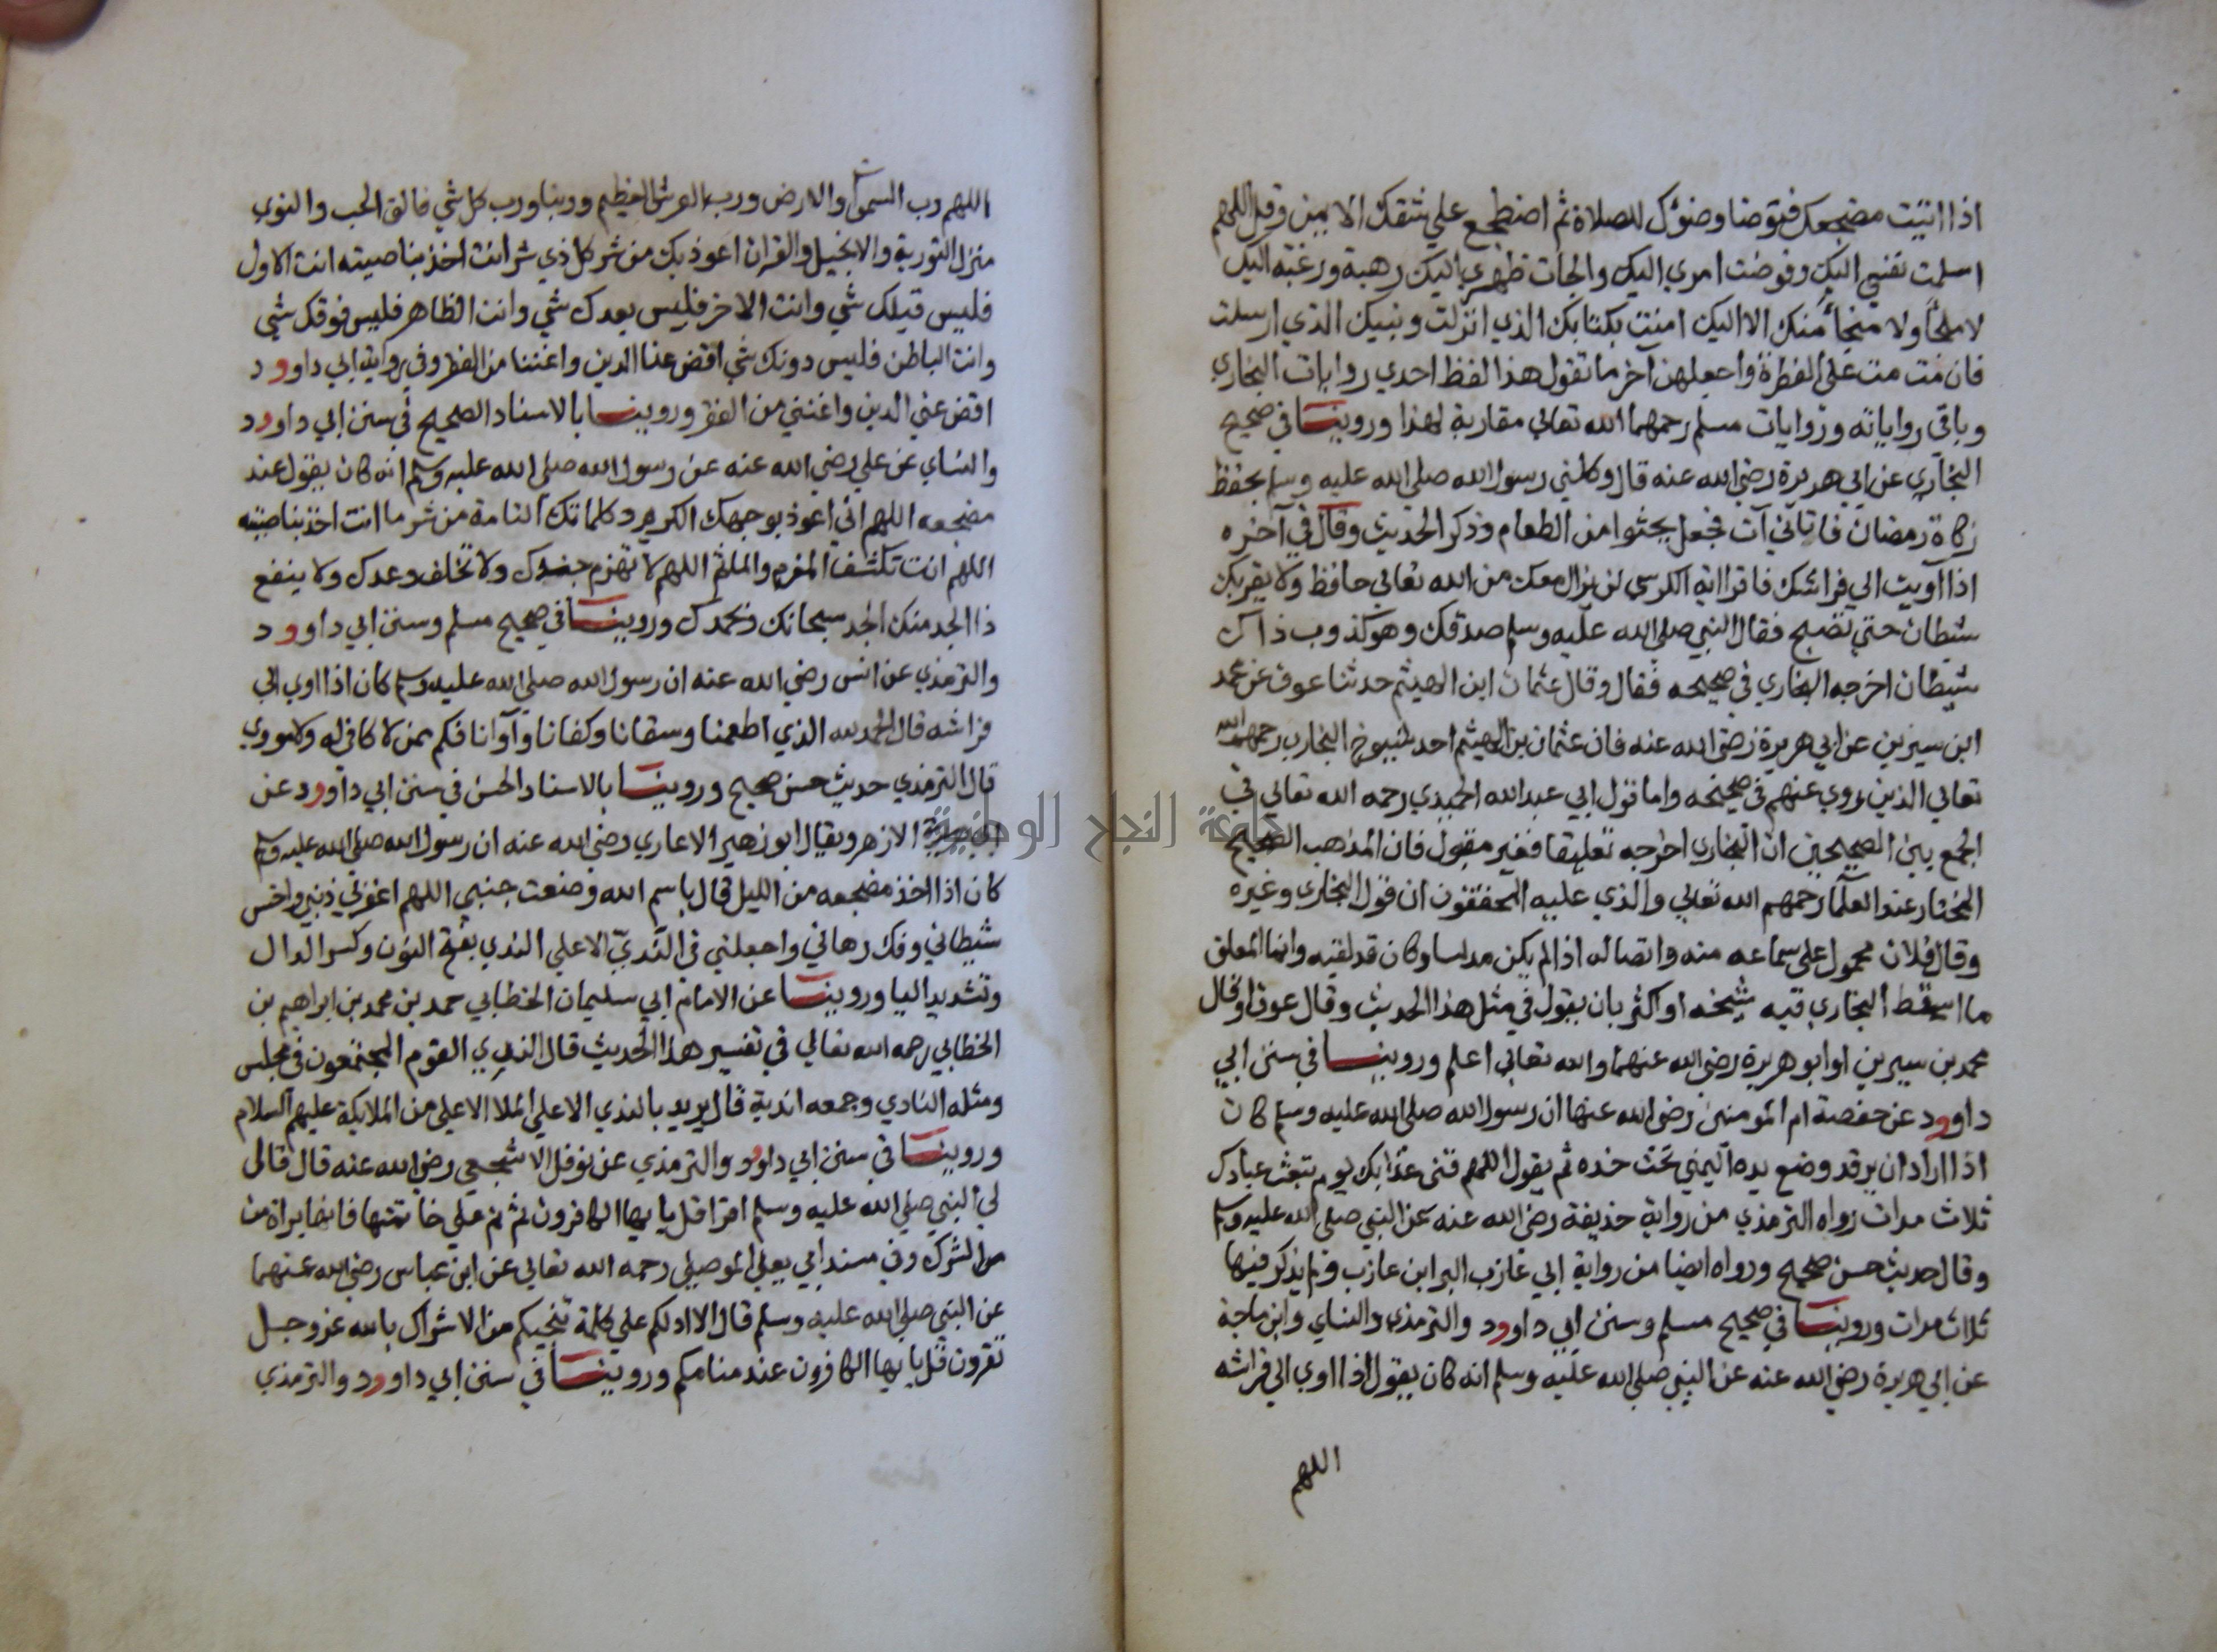 اذا اتيت مضجعك فتوضا وضوئك للصلاة ثم اضطجع علي شقك الايمن وقل اللهم
اسلمت نفسي اليك وفوضت امري اليك والجات ظهري اليك رهبة ورغبة اليك
لا ملجأ ولا منجأ منك الا اليك امنت بكتابك الذي انزلت ونبيك الذي ارسلت
فان مت مت على الفطرة واجعلهن آخر ما تقول هذا لفظ احدي روايات البخاري
وباقي رواياته وروايات مسلم رحمهما الله تعالي مقاربة لهذا وروينا في صحيح
البخاري عن ابي هريرة رضي الله عنه قال وكلني رسول الله صلي الله عليه وسلم بحفظ
زكاة رمضان فاتاني آت فجعل يحثوا من الطعام وذكر الحديث وقال في آخره
اذا آويت الي فراشك فاقرا اية الكرسي لن يزال معك من الله تعالي حافظ ولا يقربك
شيطان حتي تصبح فقال النبي صلي الله عليه وسلم صدقك وهو كذوب ذاك
شيطان اخرجه البخاري في صحيحه فقال وقال عثمان ابن الهيثم حدثنا عوف عن محمد
ابن سيرين عن ابي هريرة رضي الله عنه فان عثمان بن الهيثم احد شيوخ البخاري رحمهما الله
تعالي الذين روي عنهم في صحيحه واما قول ابي عبد الله الحميدي رحمه الله تعالي في
الجمع بين الصحيحين ان البخاري اخرجه تعليقا فغير مقبول فان المذهب الصحيح
المختار عند العلما رحمهم الله تعالي والذي عليه المحققون ان قول البخاري وغيره
وقال فلان محمول علي سماعه منه واتصاله اذا لم يكن مدلسا وكان قد لقيه وانما المعلق
ما اسقط البخاري فيه شيخه او اكثر بان يقول في مثل هذا الحديث وقال عوف او قال
محمد بن سيرين او ابو هريرة رضي الله عنهما والله تعالي اعلم وروينا في سنن ابي
داوود عن حفصة ام المومنين رضي الله عنها ان رسول الله صلي الله عليه وسلم كان
اذا اراد ان يرقد وضع يده اليمني تحت خده ثم يقول اللهم قني عذابك يوم تبعث عبادك
ثلاث مرات رواه الترمذي من رواية حذيفة رضي الله عنه عن النبي صلي الله عليه وسلم
وقال حديث حسن صحيح ورواه ايضا من رواية ابي عازب البرا ابن عازب ولم يذكر فيها
ثلاث مرات وروينا في صحيح مسلم وسنن ابي داوود والترمذي والنساي وابن ماجة
عن ابي هريرة رضي الله عنه عن النبي صلي الله عليه وسلم انه كان يقول اذا اوي الي فراشه
اللهم
اللهم رب السموات والارض ورب العرش العظيم وربنا ورب كل شي فالق الحب والنوي
منزل التورية والانجيل والقران اعوذ بك من شر كل ذي شر انت اخذ بناصيته انت الاول
فليس قبلك شي وانت الاخر فليس بعدك شي وانت الظاهر فليس فوقك شي
وانت الباطن فليس دونك شي اقض عنا الدين واغننا من الفقر وفي رواية ابي داوود
اقض عني الدين واغنني من الفقر وروينا بالاسناد الصحيح في سنن ابي داوود
والنساي عن علي رضي الله عنه عن رسول الله صلي الله عليه وسلم انه كان يقول عند
مضجعه اللهم اني اعوذ بوجهك الكريم وكلماتك التامة من شر ما انت اخذ بناصيته
اللهم انت تكشف المغرم والماثم اللهم لا تهزم جندك ولا تخلف وعدك ولا ينفع
ذا الجد منك الجد سبحانك وبحمدك وروينا في صحيح مسلم وسنن ابي داوود
والترمذي عن انس رضي الله عنه ان رسول الله صلي الله عليه وسلم كان اذا اوي الي
فراشه قال الحمد لله الذي اطعمنا وسقانا وكفانا وآوانا فكم ممن لا كافي له ولا مووي
قال الترمذي حديث حسن صحيح وروينا بالاسناد الحسن في سنن ابي داوود عن
الازهر ويقال ابو زهير الانماري رضي الله عنه ان رسول الله صلي الله عليه وسلم
كان اذا اخذ مضجعه من الليل قال باسم الله وضعت جنبي اللهم اغفر لي ذنبي واخس
شيطاني وفك رهاني واجعلني في النديّ الاعلي الندي بفتح النون وكسر الدال
وتشديد اليا وروينا عن الامام ابي سليمان الخطابي حمد بن محمد بن ابراهيم بن
الخطابي رحمه الله تعالي في تفسير هذا الحديث قال الندي القوم المجتمعون في مجلس
ومثله النادي وجمعه اندية قال يريد بالندي الاعلي الملا الاعلي من الملايكة عليهم السلام
وروينا في سنن ابي داوود والترمذي عن نوفل الاشجعي رضي الله عنه قال قال
لي النبي صلي الله عليه وسلم اقرا قل يا يها الكافرون ثم نم علي خاتمتها فانها براة من
من الشرك وفي مسند ابي يعلي الموصلي رحمه الله تعالي عن ابن عباس رضي الله عنهما
عن النبي صلي الله عليه وسلم قال الا ادلكم علي كلمة تنجيكم من الاشراك بالله عز وجل
تقرون قل يا يها الكافرون عند منامكم وروينا في سنن ابي داوود والترمذي
جامعة النجاح الوطنية